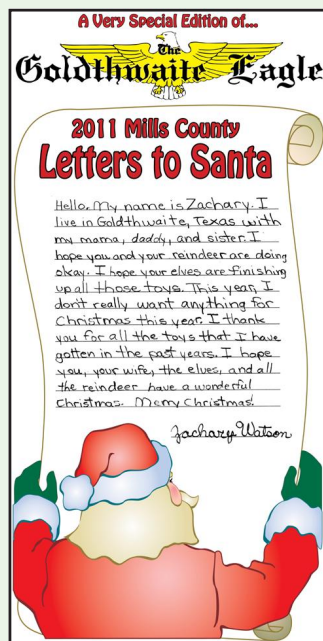 A Very Special Edition of...
The
Goldthwaite Eagle
2011 Mills County
Letters to Santa
Hello. My name is Zachary. I
live in Goldthwaite, Texas with
my mama, daddy, and sister. I
hope you and your reindeer are doing
okay. I hope your elves are finishing
up all those toys. This year, I
don't really want anything for
Christmas this year. I thank
you for all the toys that I have
gotten in the past years. I hope
you, your wife, the elves, and all
the reindeer have a wonderful
Christmas. Merry Christmas!
Zachary Watson